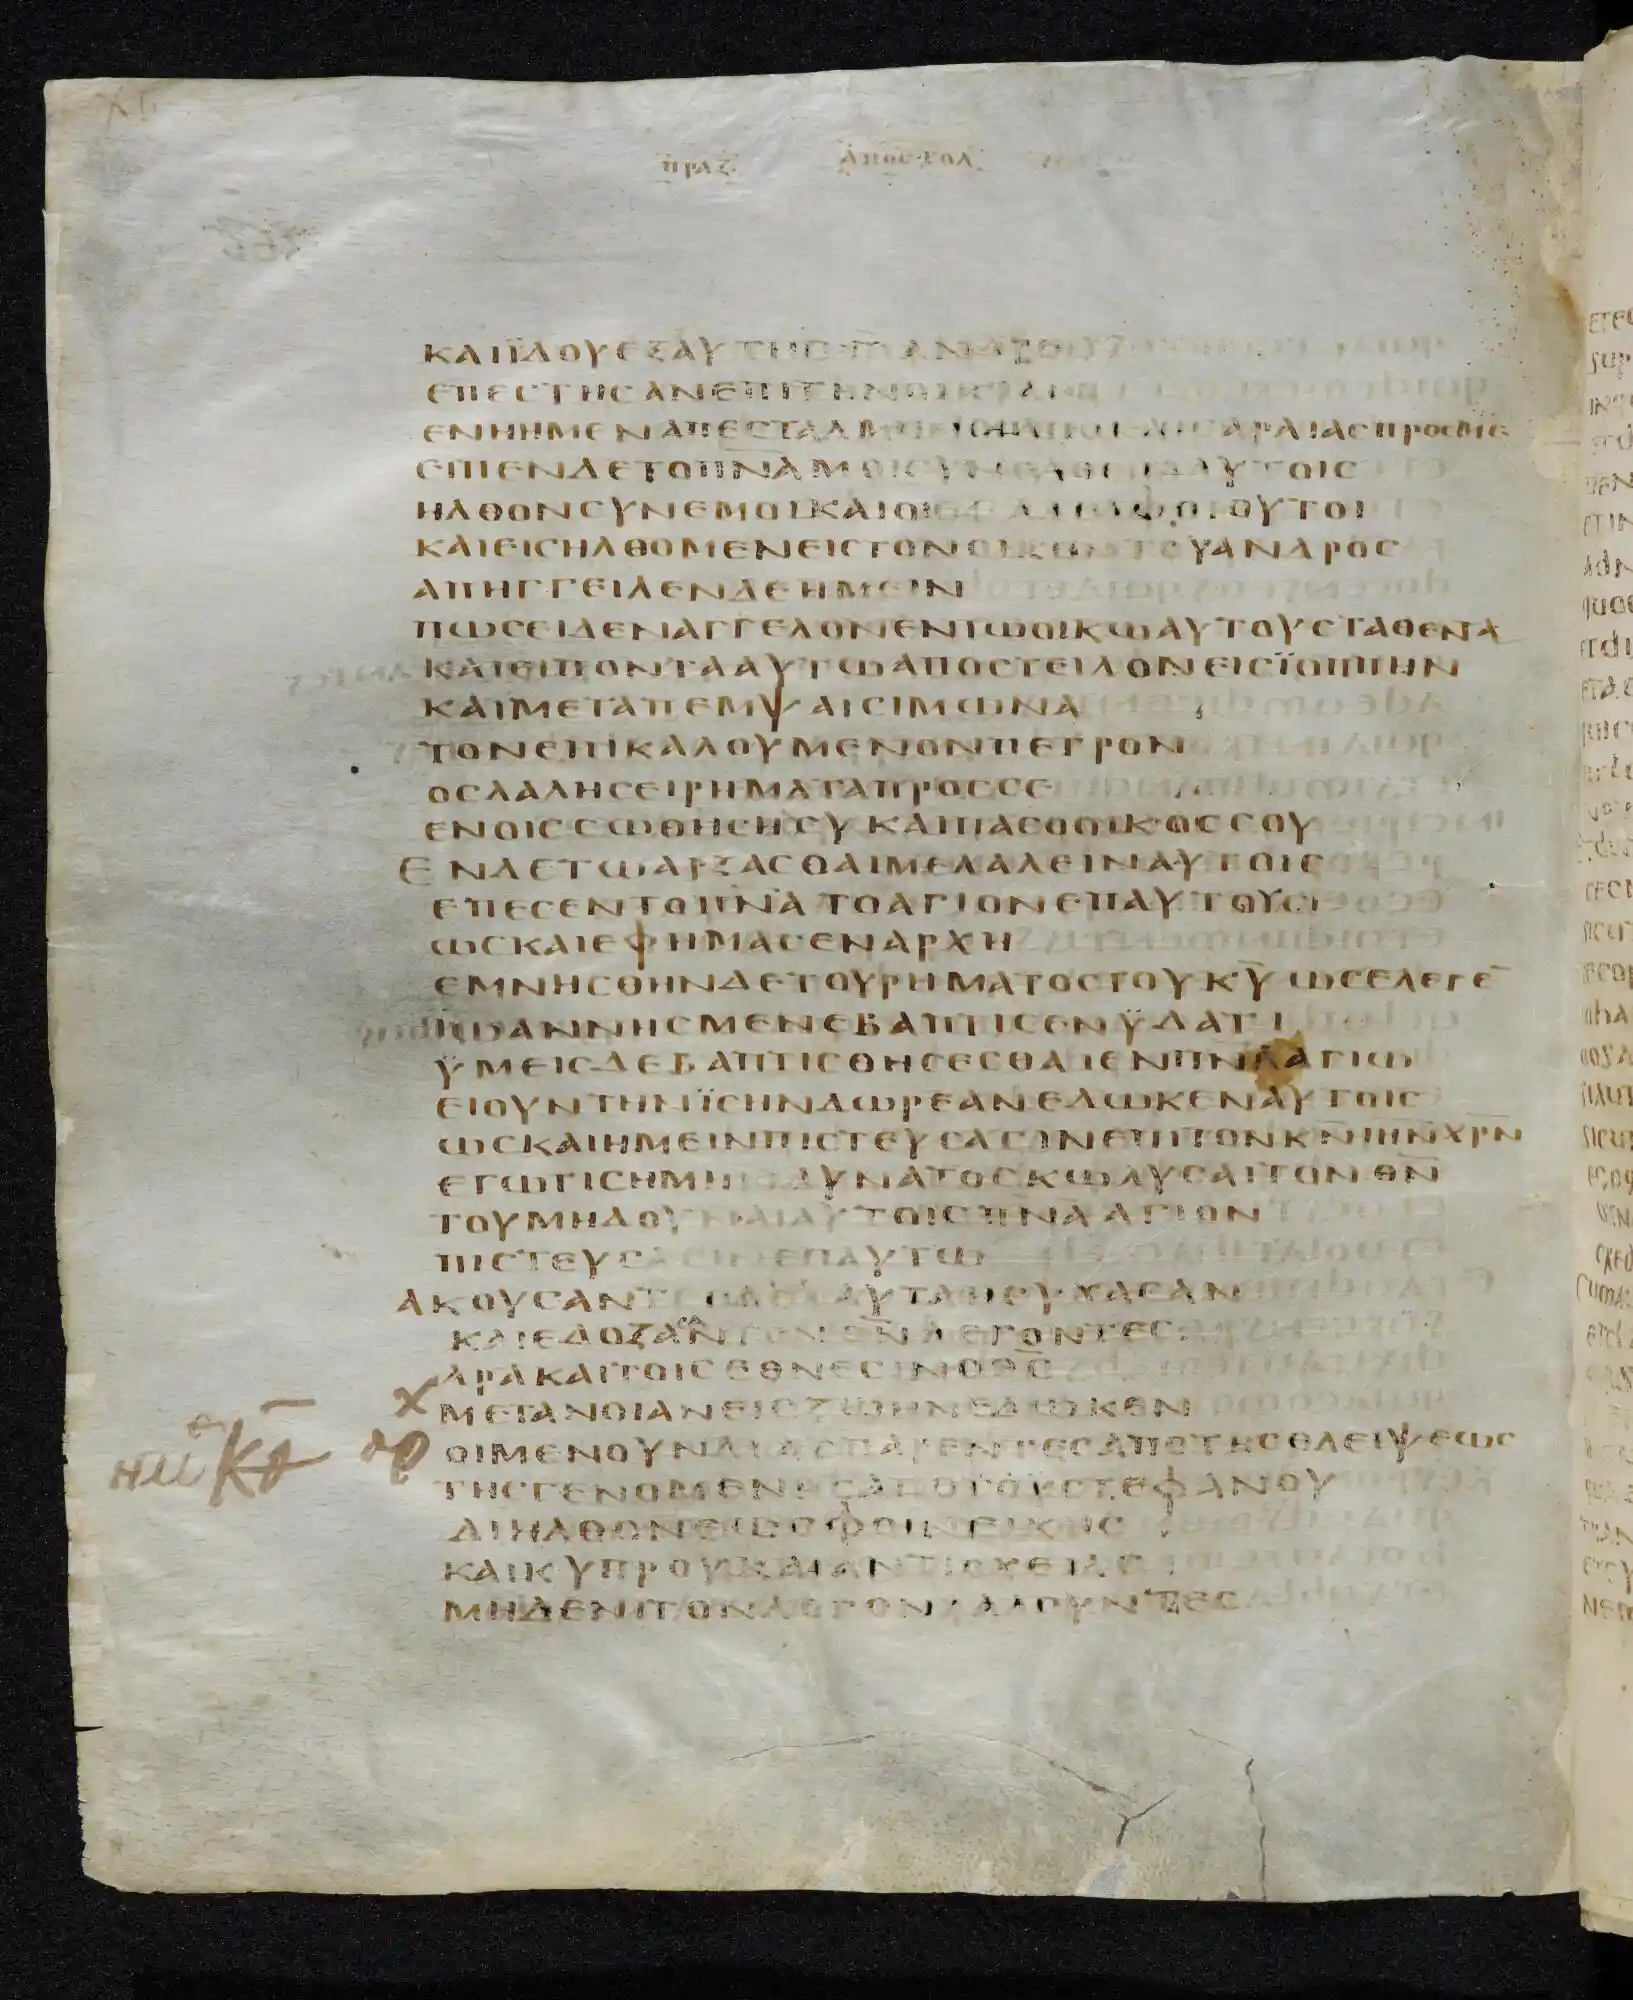 ΠΡΑΞ ΑΠΟΣΤΟΛ
ΚΑΙΪΔΟΥΕΞΑΥΤΗϹΓ̅ΑΝΔΡΕϹ
ΕΠΕϹΤΗϹΑΝΕΠΙΤΗΝΟΙΚΙΑΝ
ΕΝΗΗΜΕΝΑΠΕϹΤΑΛΜΕΝΟΙΑΠΟΚΑΙϹΑΡΑΙΑϹΠΡΟϹΜΕ
ΕΙΠΕΝΔΕΤΟΠ̅Ν̅Α̅ΜΟΙϹΥΝΕΛΘΕΙΝΑΥΤΟΙϹ
ΗΛΘΟΝϹΥΝΕΜΟΙΚΑΙΟΙΕΞΑΔΕΛΦΟΙΟΥΤΟΙ
ΚΑΙΕΙϹΗΛΘΟΜΕΝΕΙϹΤΟΝΟΙΚΟΝΤΟΥΑΝΔΡΟϹ
ΑΠΗΓΓΕΙΛΕΝΔΕΗΜΕΙΝ
ΠΩϹΕΙΔΕΝΑΓΓΕΛΟΝΕΝΤΩΟΙΚΩΑΥΤΟΥϹΤΑΘΕΝΤΑ
ΚΑΙΕΙΠΟΝΤΑΑΥΤΩΑΠΟϹΤΕΙΛΟΝΕΙϹΪΟΠΠΗΝ
ΚΑΙΜΕΤΑΠΕΜΨΑΙϹΙΜΩΝΑ
ΤΟΝΕΠΙΚΑΛΟΥΜΕΝΟΝΠΕΤΡΟΝ
ΟϹΛΑΛΗϹΕΙΡΗΜΑΤΑΠΡΟϹϹΕ
ΕΝΟΙϹϹΩΘΗϹΗϹΥΚΑΙΠΑϹΟΟΙΚΟϹϹΟΥ
ΕΝΔΕΤΩΑΡΞΑϹΘΑΙΜΕΛΑΛΕΙΝΑΥΤΟΙϹ
ΕΠΕϹΕΝΤΟΠ̅Ν̅Α̅ΤΟΑΓΙΟΝΕΠΑΥΤΟΙϹ
ΩϹΚΑΙΕΦΗΜΑϹΕΝΑΡΧΗ
ΕΜΝΗϹΘΗΝΔΕΤΟΥΡΗΜΑΤΟϹΤΟΥΚ̅Υ̅ΩϹΕΛΕΓΕ̅
ΪΩΑΝΝΗϹΜΕΝΕΒΑΠΤΙϹΕΝΫΔΑΤΙ
ΫΜΕΙϹΔΕΒΑΠΤΙϹΘΗϹΕϹΘΑΙΕΝΠ̅Ν̅Ι̅ΑΓΙΩ
ΕΙΟΥΝΤΗΝΪϹΗΝΔΩΡΕΑΝΕΔΩΚΕΝΑΥΤΟΙϹ
ΩϹΚΑΙΗΜΕΙΝΠΙϹΤΕΥϹΑϹΙΝΕΠΙΤΟΝΚ̅Ν̅ΙΗ̅Ν̅ΧΡ̅Ν̅
ΕΓΩΤΙϹΗΜΗΝΔΥΝΑΤΟϹΚΩΛΥϹΑΙΤΟΝΘ̅Ν̅
ΤΟΥΜΗΔΟΥΝΑΙΑΥΤΟΙϹΠ̅Ν̅Α̅ΑΓΙΟΝ
ΠΙϹΤΕΥϹΑϹΙΝΕΠΑΥΤΩ
ΑΚΟΥϹΑΝΤΕϹΔΕΤΑΥΤΑΗϹΥΧΑϹΑΝ
ΚΑΙΕΔΟΞΑϹΑΝΤΟΝΘ̅Ν̅ΛΕΓΟΝΤΕϹ
ΑΡΑΚΑΙΤΟΙϹΕΘΝΕϹΙΝΟΘ̅Ϲ̅
ΜΕΤΑΝΟΙΑΝΕΙϹΖΩΗΝΕΔΩΚΕΝ
ΟΙΜΕΝΟΥΝΔΙΑϹΠΑΡΕΝΤΕϹΑΠΟΤΗϹΘΛΕΙΨΕΩϹ
ΤΗϹΓΕΝΟΜΕΝΗϹΑΠΟΤΟΥϹΤΕΦΑΝΟΥ
ΔΙΗΛΘΟΝΕΩϹΦΟΙΝΕΙΚΗϹ
ΚΑΙΚΥΠΡΟΥΚΑΙΑΝΤΙΟΧΕΙΑϹ
ΜΗΔΕΝΙΤΟΝΛΟΓΟΝΛΑΛΟΥΝΤΕϹ